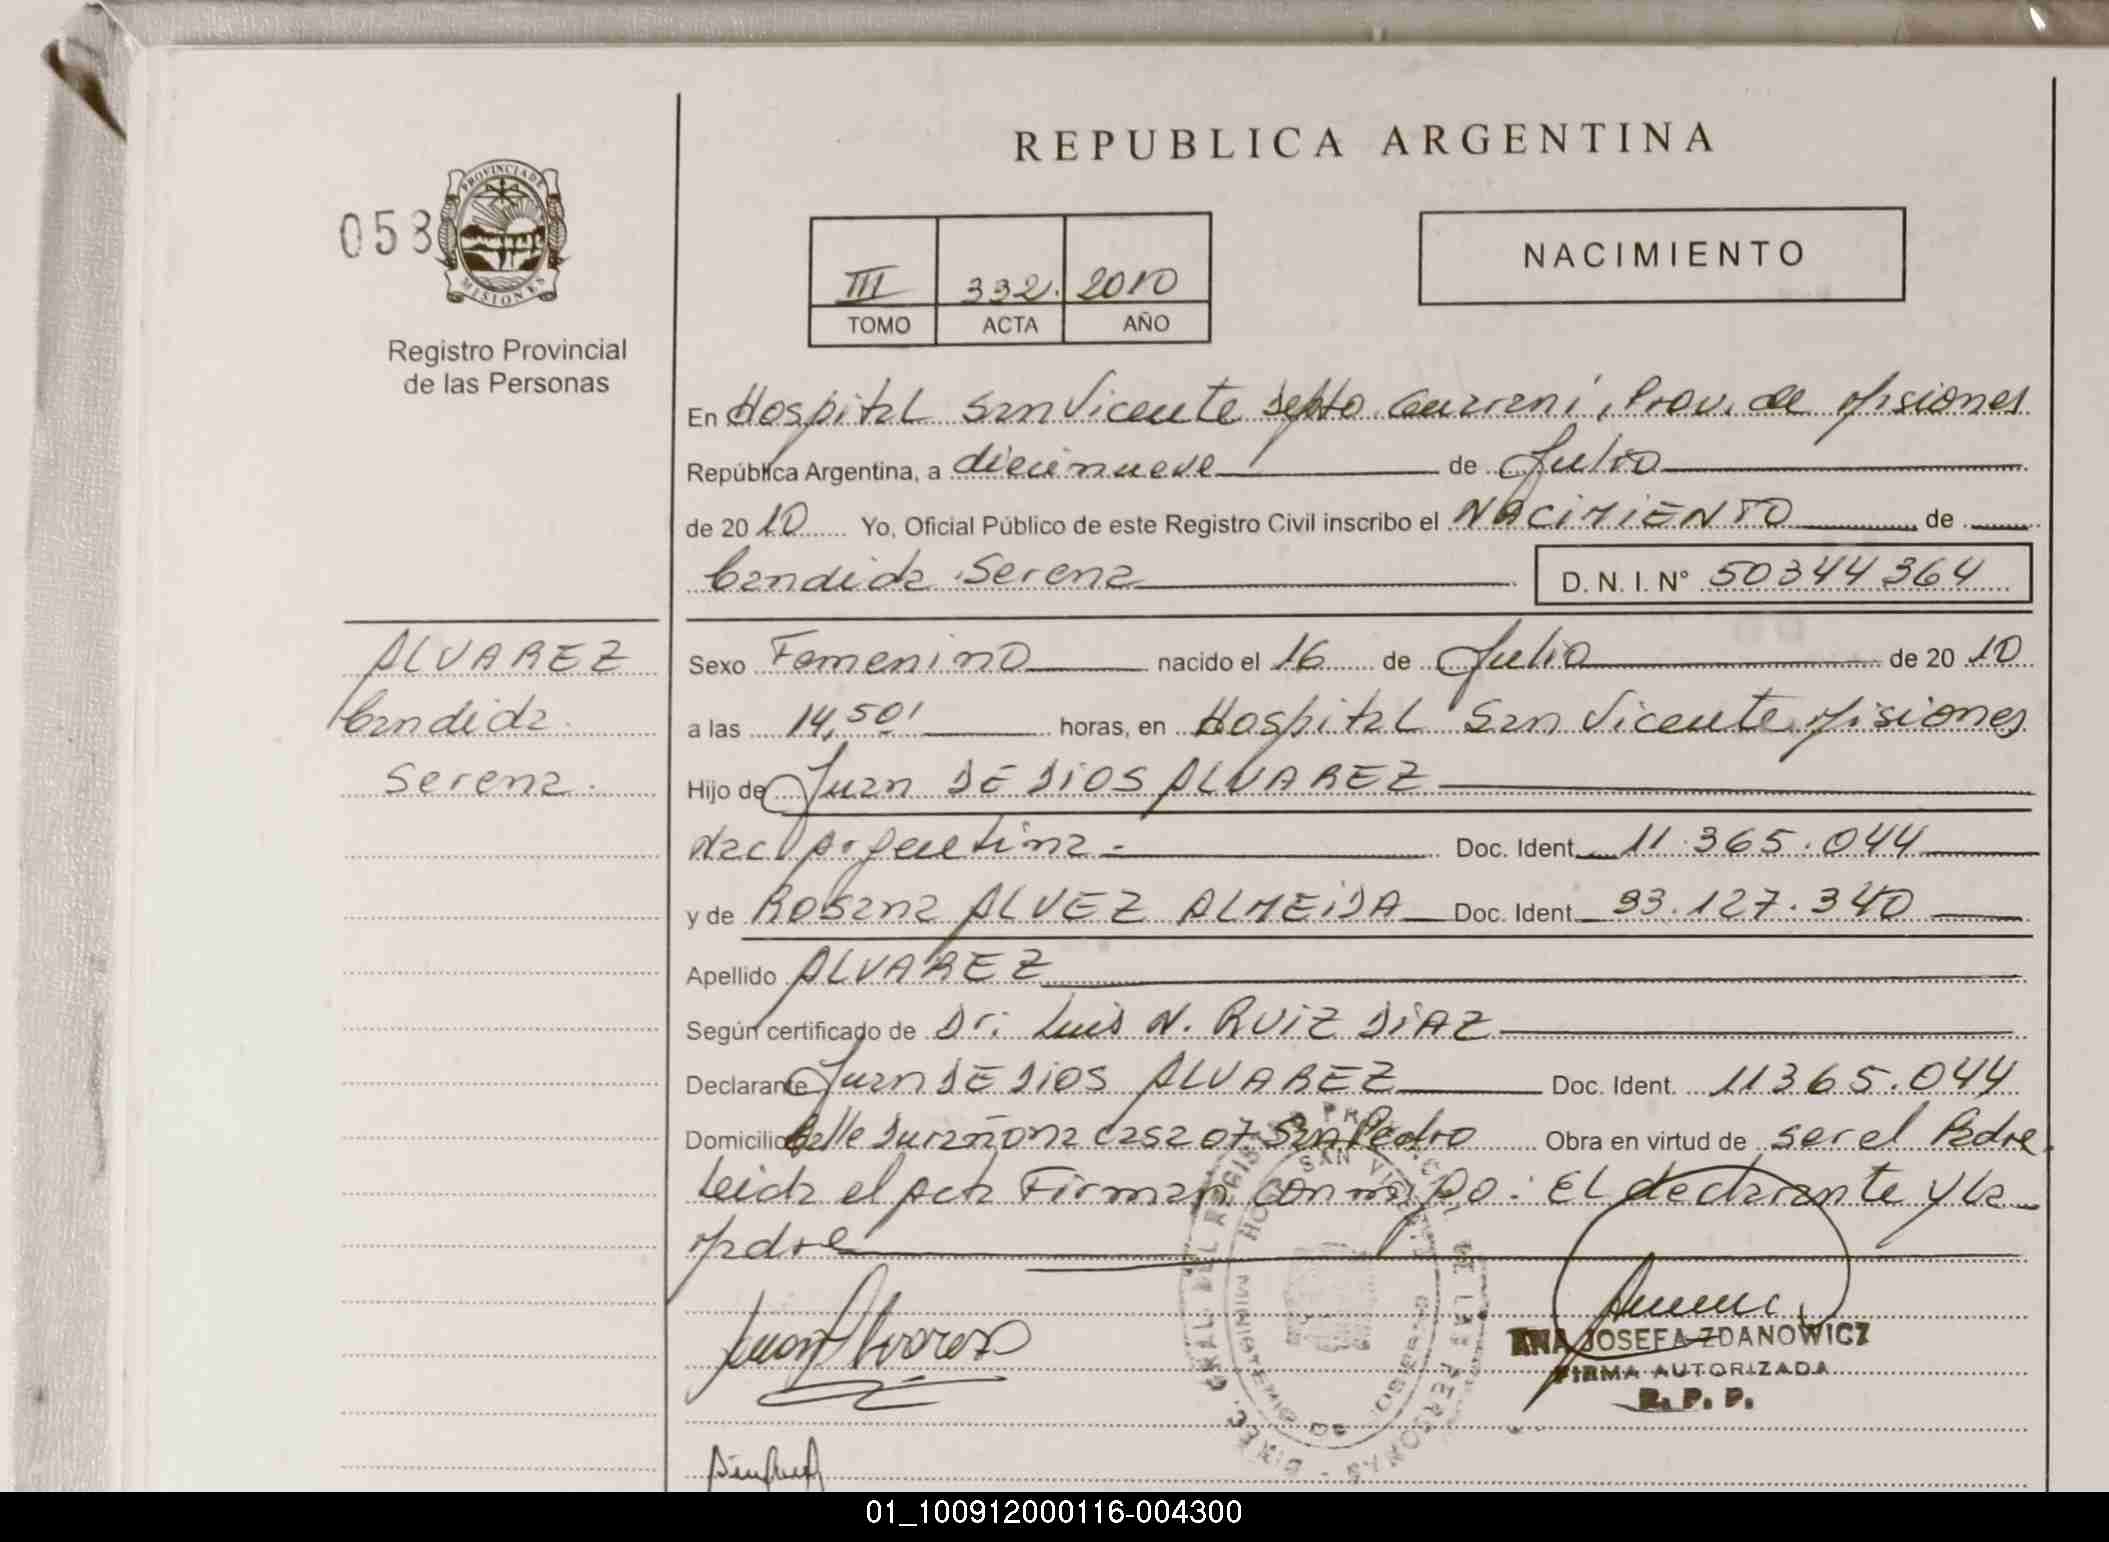 REPUBLICA ARGENTINA
058
PROVINCIA DE
MISIONES
Registro Provincial
de las Personas
III 332. 2010
TOMO ACTA AÑO
NACIMIENTO
En Hospital San Vicente Depto Guarani, Prov. de Misiones
República Argentina, a diecinueve de Julio
de 2010 Yo, Oficial Público de este Registro Civil inscribo el NACIMIENTO de
Candida Serena D. N. I. N° 50344364
ALVAREZ
Candida
Serena.
Sexo Femenino nacido el 16 de Julio de 2010
a las 14,50' horas, en Hospital San Vicente Misiones
Hijo de Juan DE DIOS ALVAREZ
Nac Argentina - Doc. Ident. 11.365.044
y de Rosana ALVEZ ALMEIDA Doc. Ident. 93.127.340
Apellido ALVAREZ
Según certificado de Dr. Luis N. RUIZ DIAZ
Declarante Juan DE DIOS ALVAREZ Doc. Ident. 11365.044
Domicilio Calle Durañona casa 07 San Pedro Obra en virtud de ser el Padre.
Leida el acta Firman conmigo: El declarante y la
Madre
Juan Alvarez
ANA JOSEFA ZDANOWICZ
FIRMA AUTORIZADA
R. P. P.
01_100912000116-004300